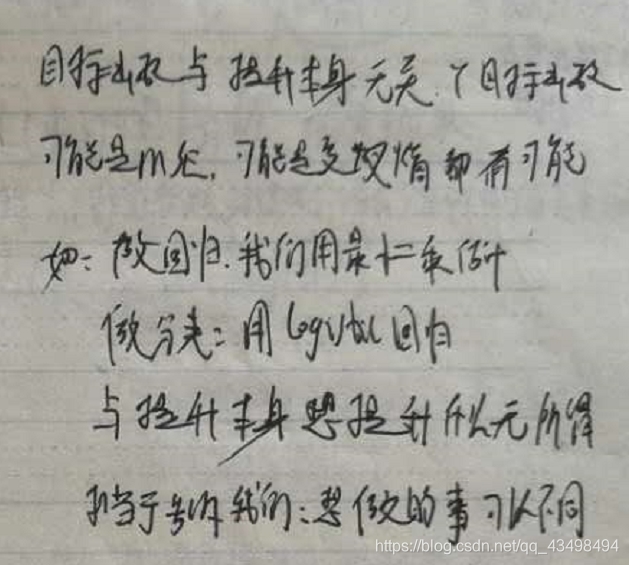 目标函数与提升本身无关.丫目标函数
可能是m允,可能是交叉熵都有可能
如:做回归.我们用最小二乘估计
做分类:用logistic回归
与提升本身想提升什么无所谓
相当于告诉我们:想做的事可以不同
https://blog.csdn.net/qq_43498494